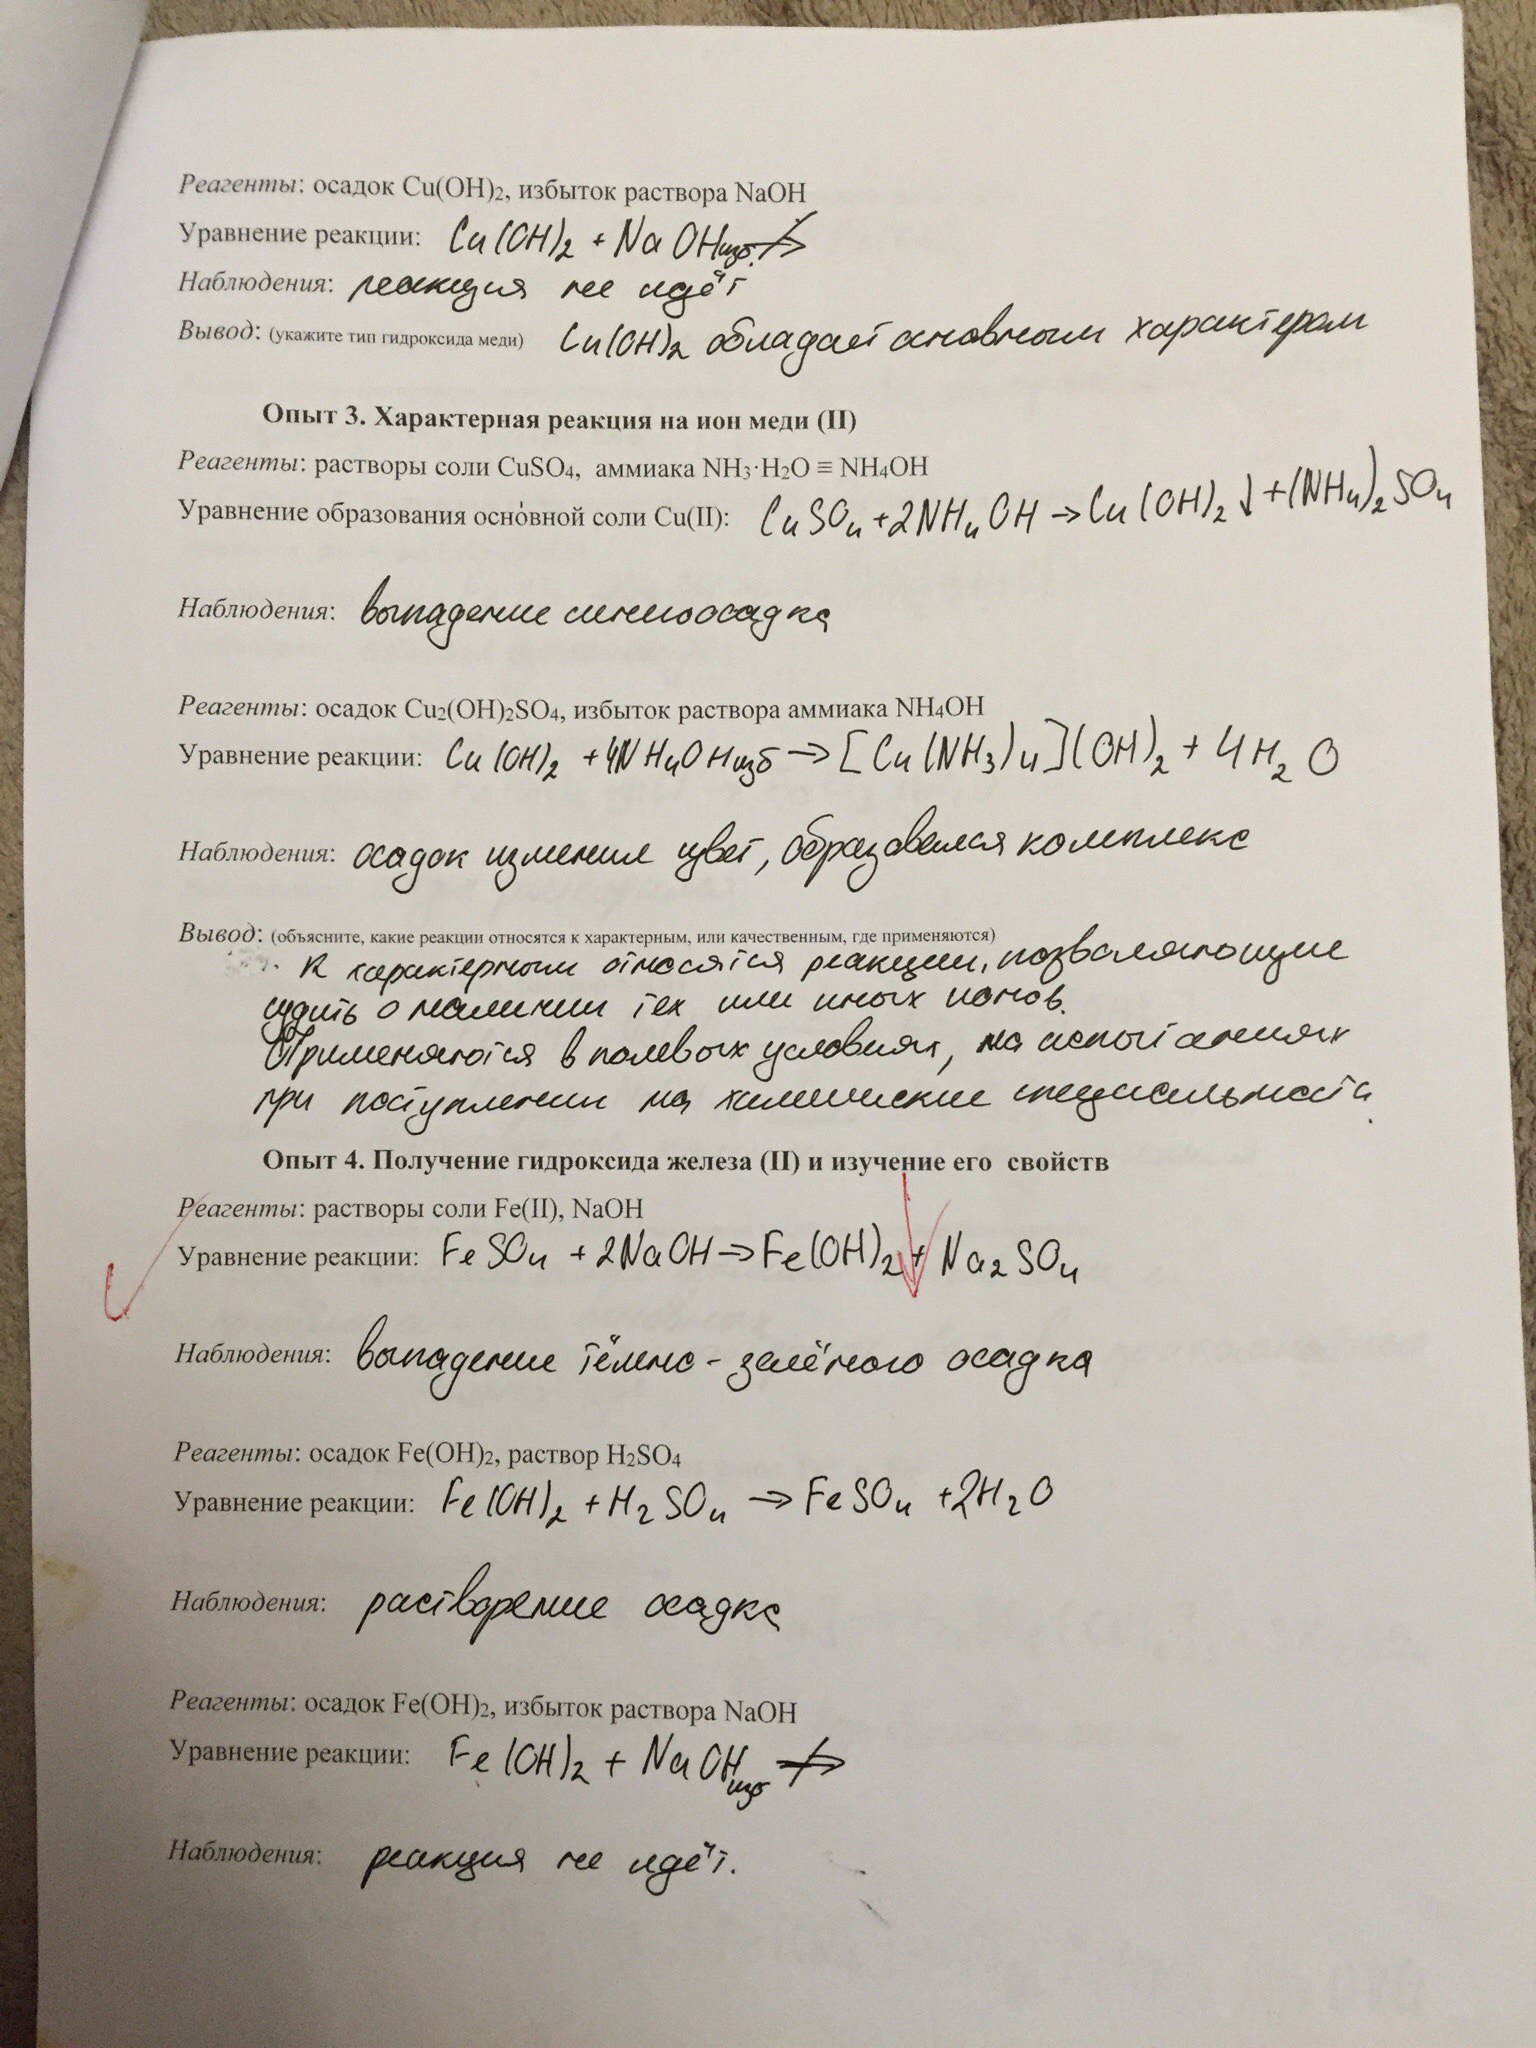 Реагенты: осадок Cu(OH)2, избыток раствора NaOH
Уравнение реакции: Cu(OH)2 + NaOHизб. ↛
Наблюдения: реакция не идёт
Вывод: (укажите тип гидроксида меди) Cu(OH)2 обладает основным характером
Опыт 3. Характерная реакция на ион меди (II)
Реагенты: растворы соли CuSO4, аммиака NH3·H2O ≡ NH4OH
Уравнение образования осно́вной соли Cu(II): CuSO4 + 2NH4OH → Cu(OH)2↓ + (NH4)2SO4
Наблюдения: выпадение синего осадка
Реагенты: осадок Cu2(OH)2SO4, избыток раствора аммиака NH4OH
Уравнение реакции: Cu(OH)2 + 4NH4OHизб → [Cu(NH3)4](OH)2 + 4H2O
Наблюдения: осадок изменил цвет, образовался комплекс
Вывод: (объясните, какие реакции относятся к характерным, или качественным, где применяются)
К характерным относятся реакции, позволяющие
судить о наличии тех или иных ионов.
Применяются в полевых условиях, на испытаниях
при поступлении на химические специальности.
Опыт 4. Получение гидроксида железа (II) и изучение его свойств
Реагенты: растворы соли Fe(II), NaOH
Уравнение реакции: FeSO4 + 2NaOH → Fe(OH)2↓ + Na2SO4
Наблюдения: выпадение тёмно-зелёного осадка
Реагенты: осадок Fe(OH)2, раствор H2SO4
Уравнение реакции: Fe(OH)2 + H2SO4 → FeSO4 + 2H2O
Наблюдения: растворение осадка
Реагенты: осадок Fe(OH)2, избыток раствора NaOH
Уравнение реакции: Fe(OH)2 + NaOHизб ↛
Наблюдения: реакция не идёт.